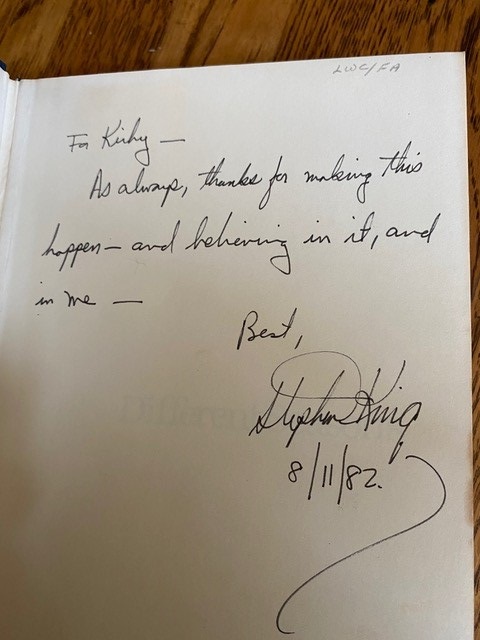 LWC/FA
For Kirby —
As always, thanks for making this
happen — and believing in it, and
in me —
Best,
Stephen King
8/11/82.
Different